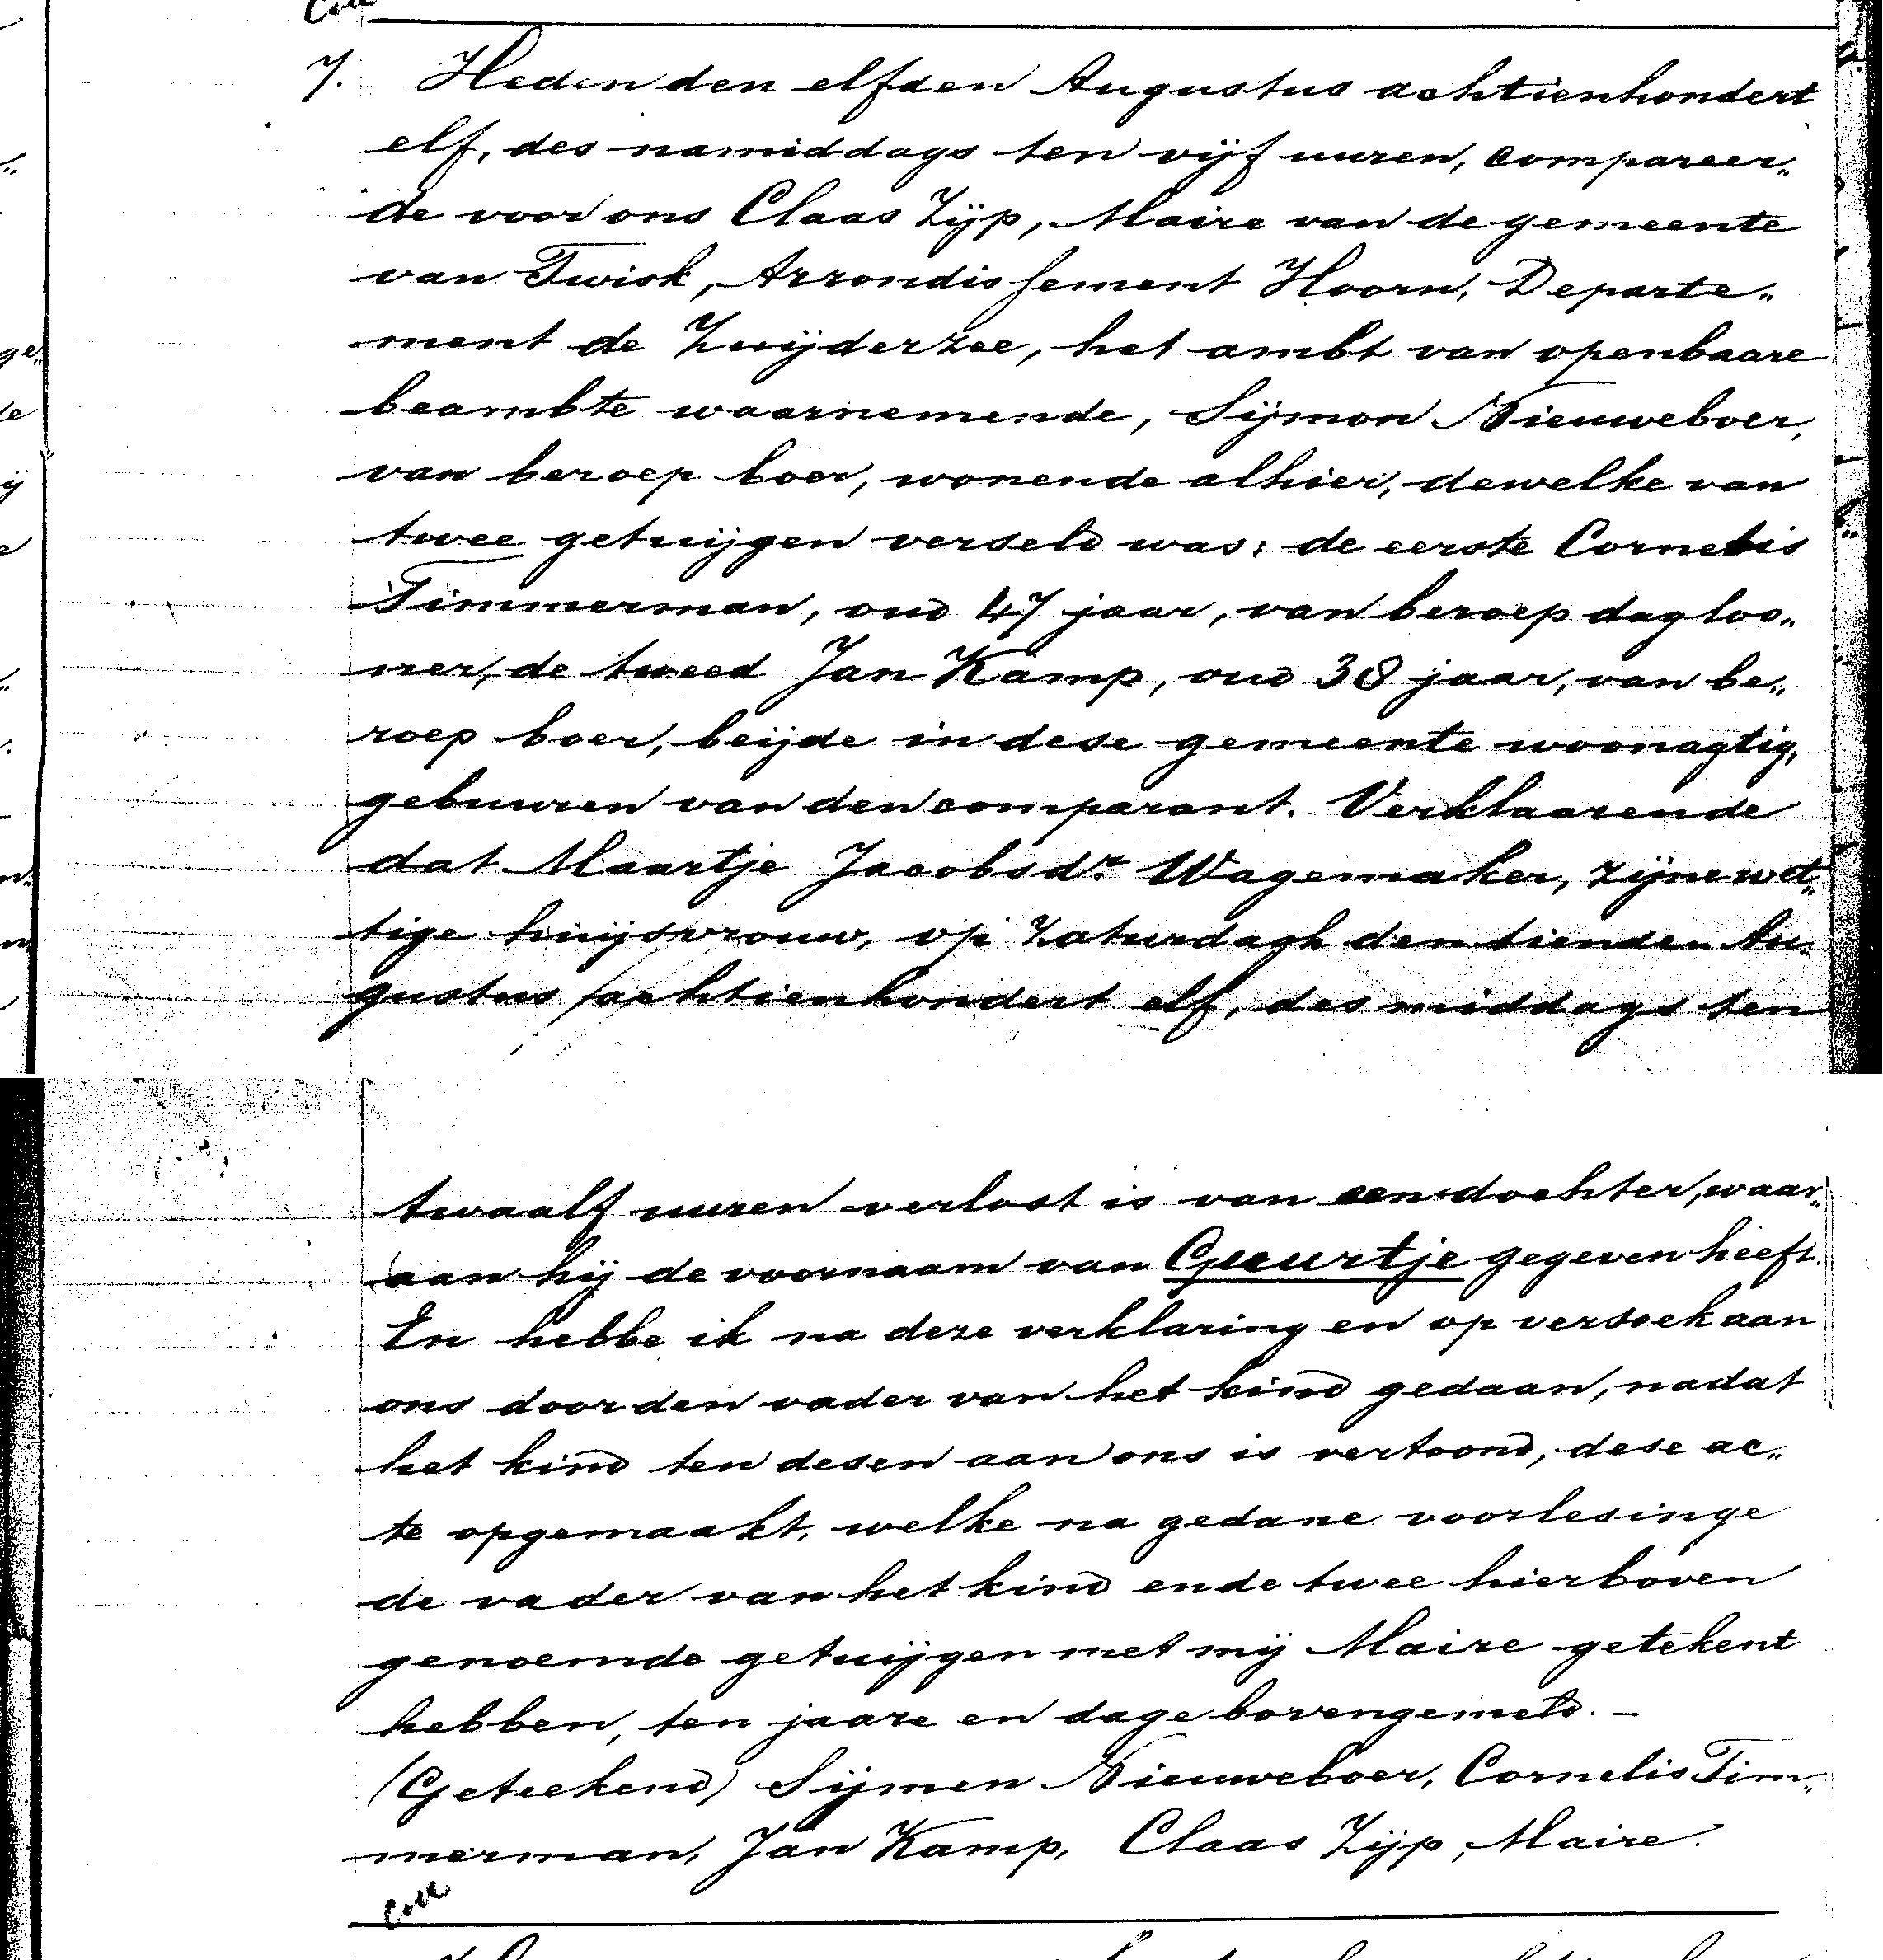 Coll
7. Heden den elfden Augustus achtienhondert
elf, des namiddags ten vijf uuren, compareer„
de voor ons Claas Zijp, Maire van de gemeente
van Twisk, Arrondissement Hoorn, Departe„
ment de Zuijderzee, het ambt van openbaare
beambte waarnemende, Sijmon Nieuweboer,
van beroep boer, wonende alhier, dewelke van
twee getuijgen verseld was: de eerste Cornelis
Timmerman, oud 47 jaar, van beroep dagloo„
ner, de tweed Jan Kamp, oud 38 jaar, van be„
roep boer, beijde in dese gemeente woonagtig,
gebuuren van den comparant. Verklaarende
dat Maartje Jacobsdr. Wagemaker, zijne wet„
tige huijsvrouw, op Zaturdagh den tienden Au„
gustus achtienhondert elf, des middags ten
twaalf uuren verlost is van een dochter, waar„
aan hij de voornaam van Geeurtje gegeven heeft.
En hebbe ik na deze verklaring en op versoek aan
ons door den vader van het kind gedaan, nadat
het kind ten desen aan ons is vertoond, dese ac„
te opgemaakt, welke na gedane voorlesinge
de vader van het kind en de twee hierboven
genoemde getuijgen met mij Maire getekent
hebben, ten jaare en dage bovengemeld. —
(Geteekend) Sijmen Nieuweboer, Cornelis Tim„
merman, Jan Kamp, Claas Zijp, Maire.
Coll